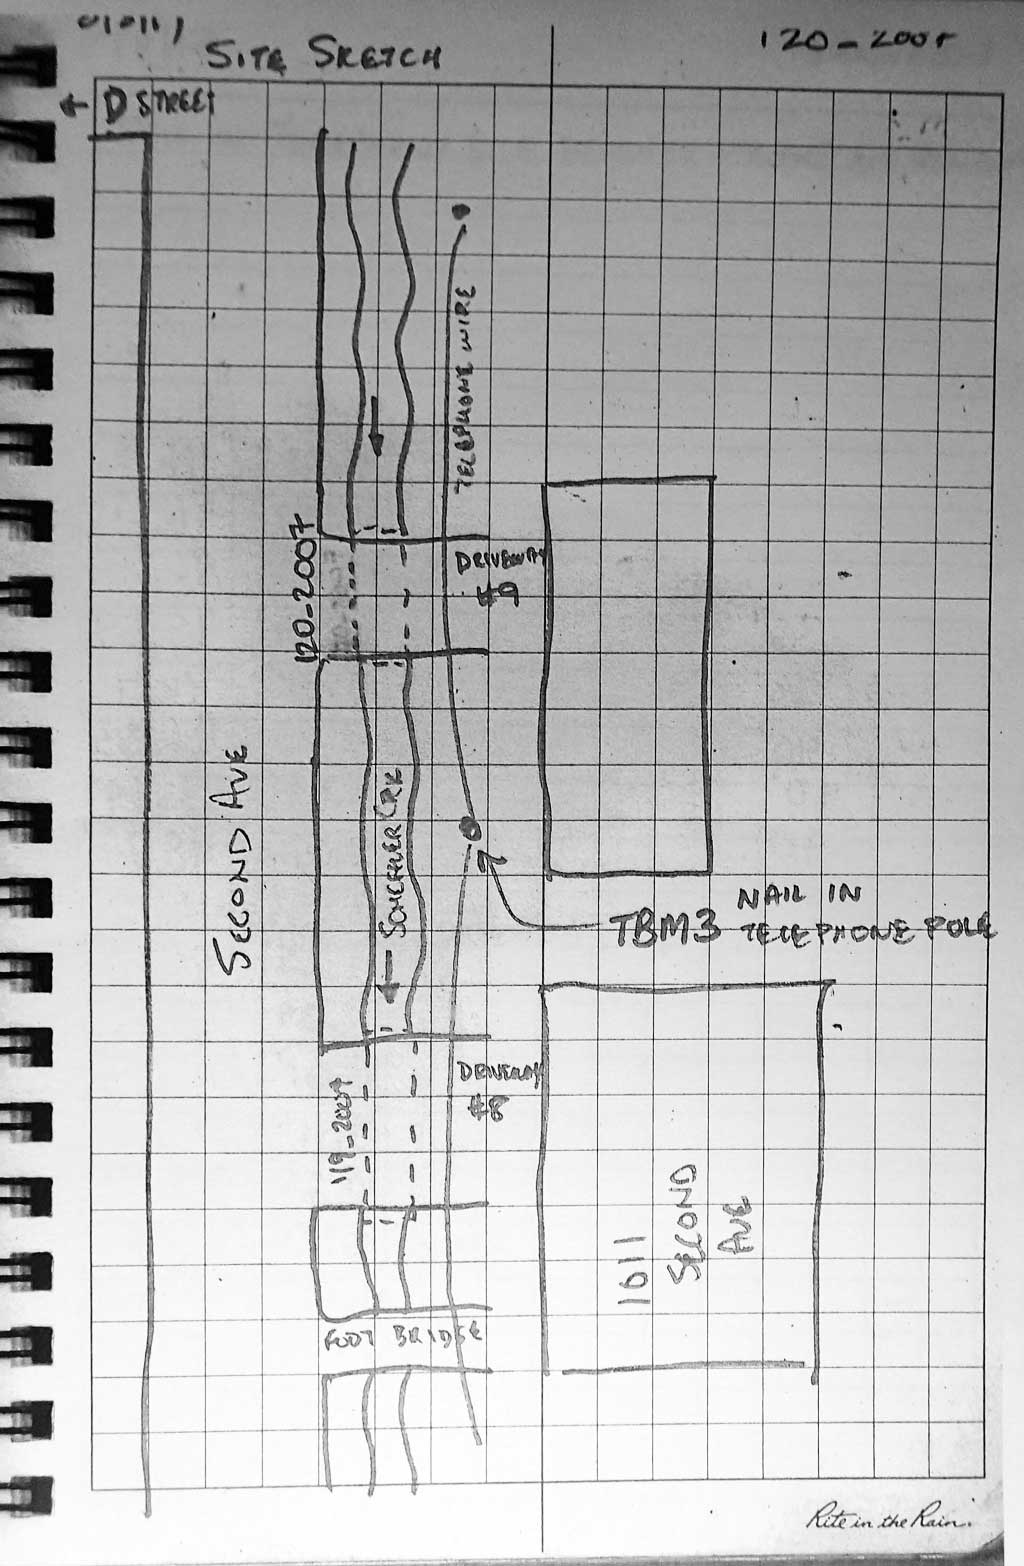 SITE SKETCH
120-2007
D STREET
TELEPHONE WIRE
120-2007
DRIVEWAY
#9
SECOND AVE
SCHEFFLER CRK
TBM3 NAIL IN
TELEPHONE POLE
DRIVEWAY
#8
119-2007
1011
SECOND
AVE
FOOT BRIDGE
Rite in the Rain.